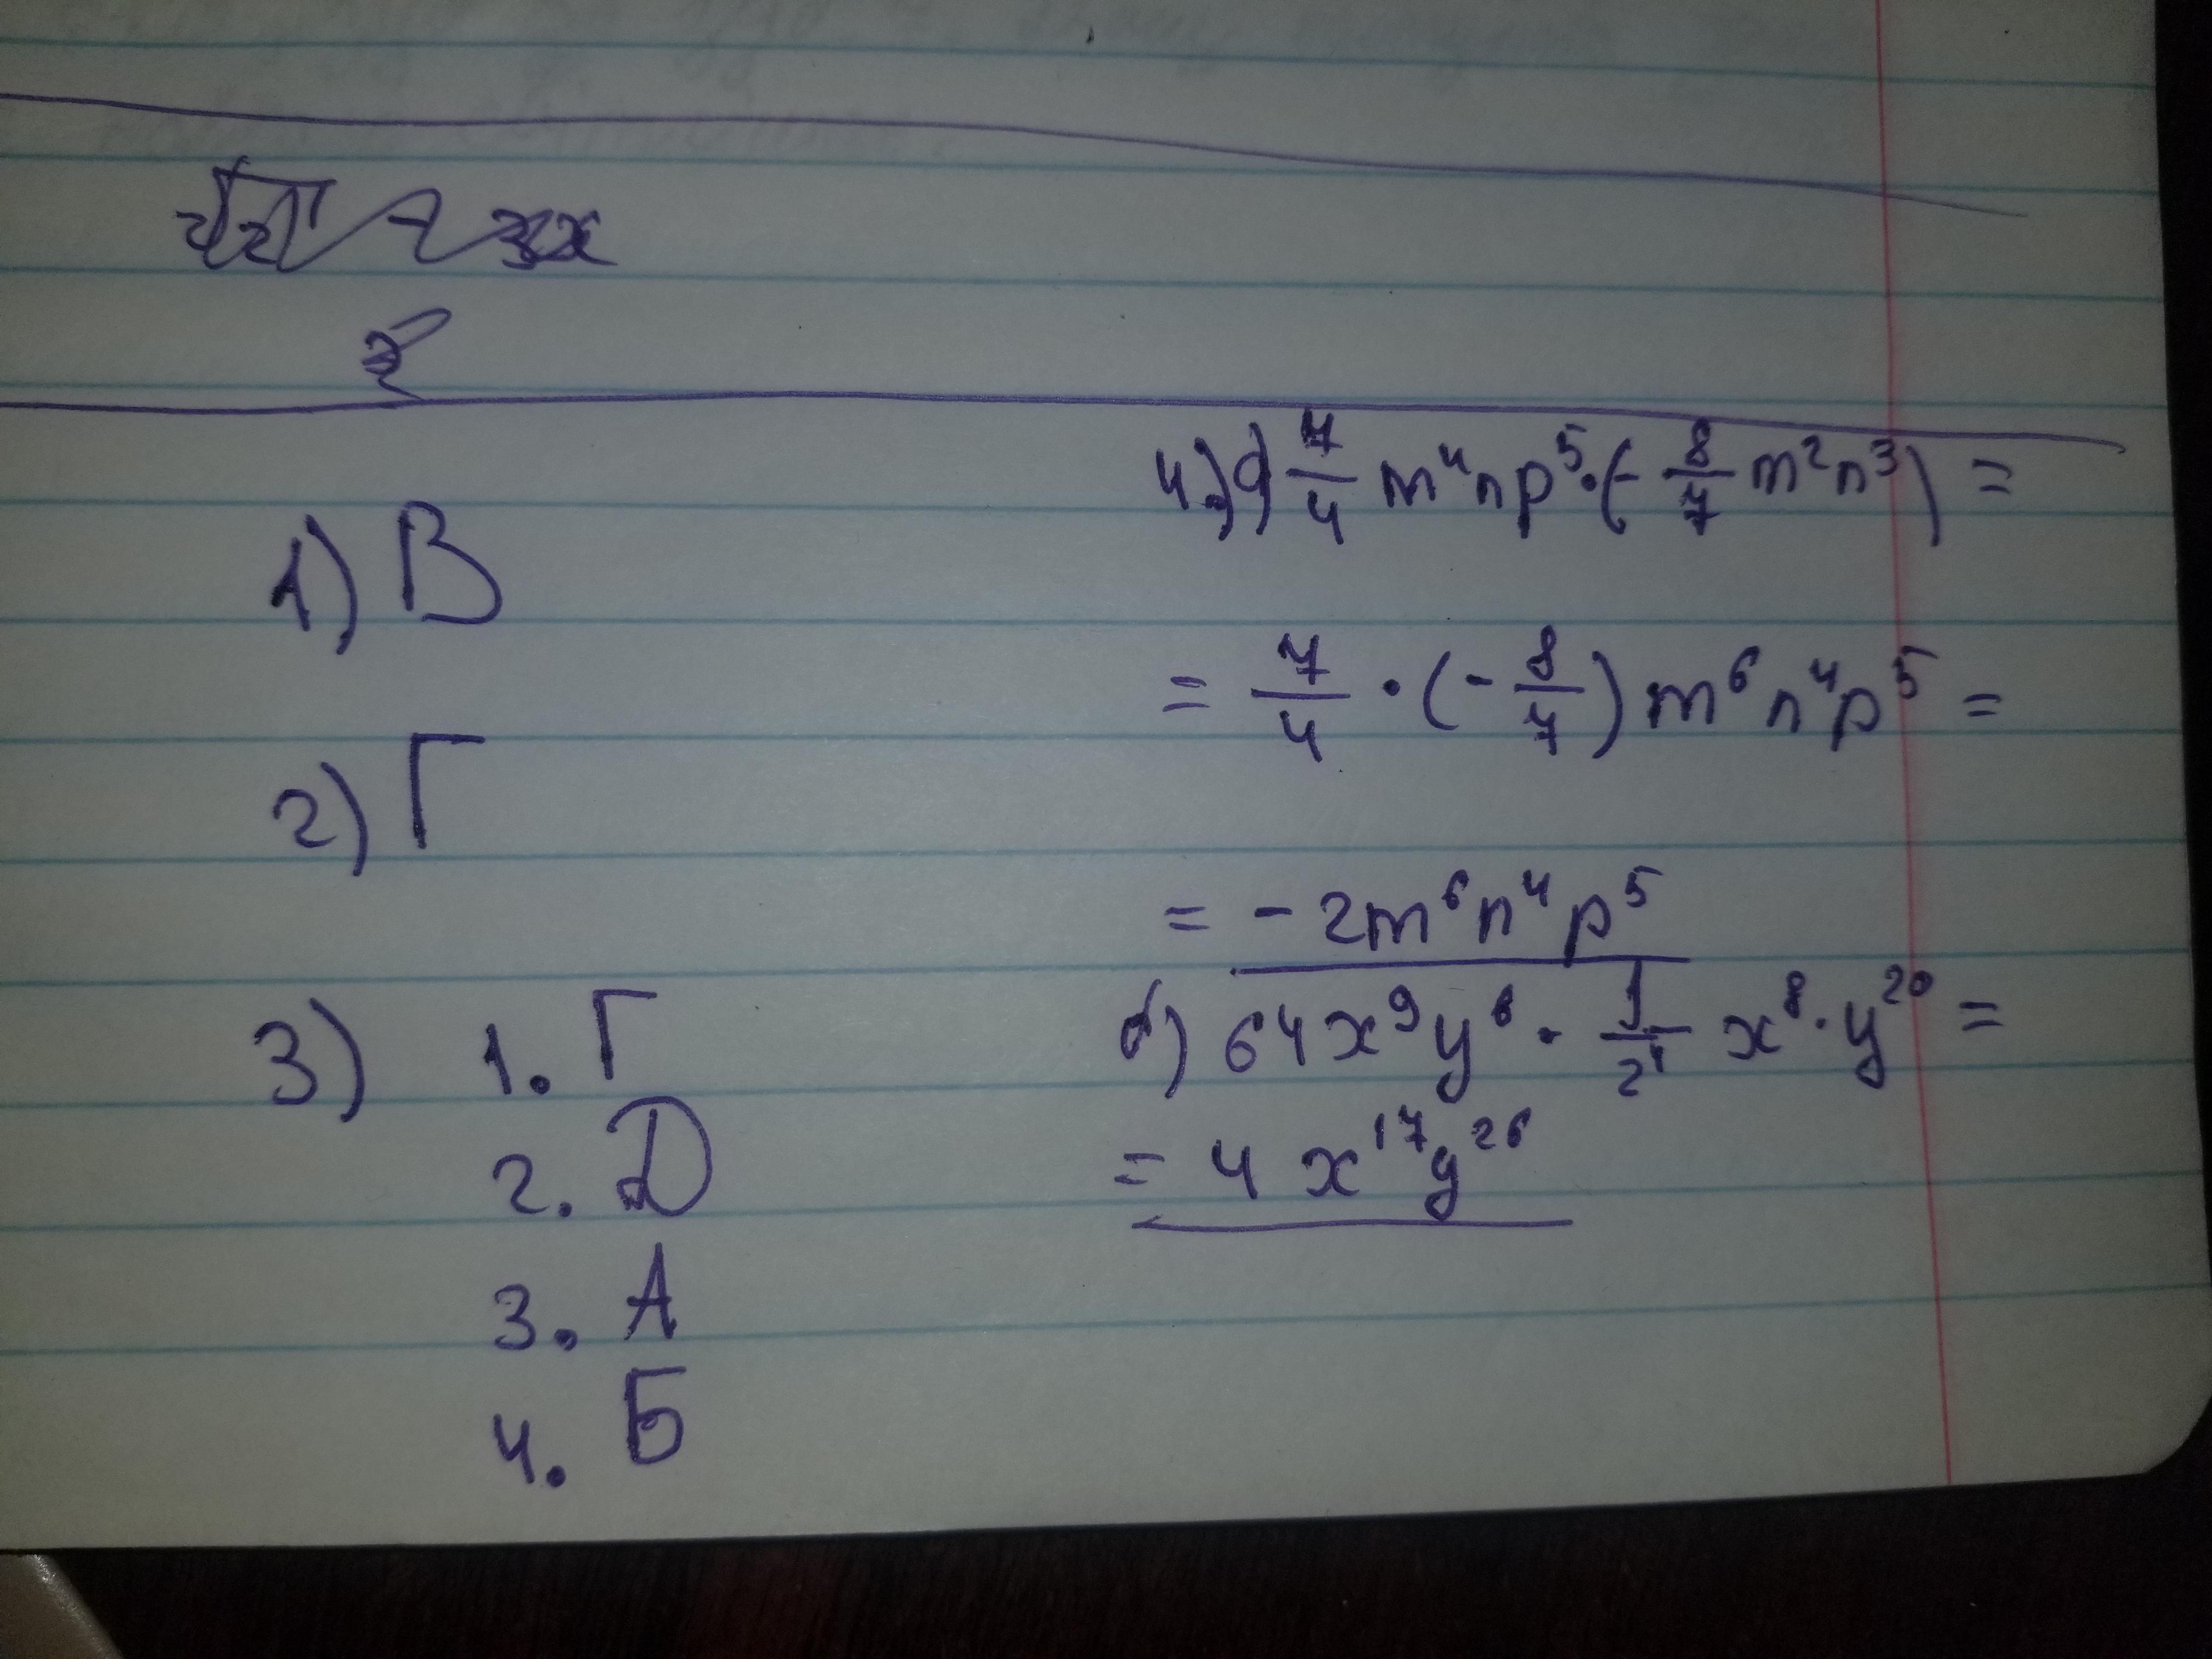 1) В
2) Г
3) 1. Г
2. D
3. А
4. Б
4) а) 7/4 m⁴np⁵·(- 8/7 m²n³) =
= 7/4 · (- 8/7) m⁶n⁴p⁵ =
= - 2m⁶n⁴p⁵
б) 64x⁹y⁶ · 1/2⁴ x⁸·y²⁰ =
= 4 x¹⁷y²⁶